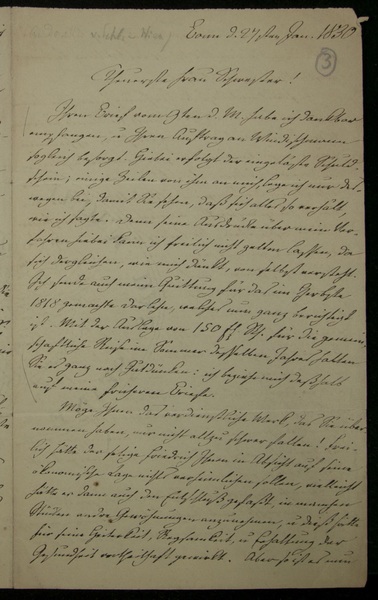 Bonn d. 27sten Jan. 1830
3
Theuerste Frau Schwester!
Ihren Brief vom 9ten d. M. habe ich dankbar
empfangen, u Ihren Auftrag an Windischmann
sogleich besorgt. Hiebei erfolgt der eingelöste Schuld-
schein; einige Zeilen von ihm an mich lege ich nur des-
wegen bei, damit Sie sehen, daß sich alles so verhält,
wie ich sagte. Denn seine Ausdrücke über mein Ver-
fahren hiebei kann ich freilich nicht gelten lassen, da
sich dergleichen, wie mich dünkt, von selbst versteht.
Ich sende auch meine Quittung für das im Herbste
1818 gemachte Darlehn, welches nun ganz berichtigt
ist. Mit der Auslage von 150 f Rh. für die gemein-
schaftliche Reise im Sommer desselben Jahres halten
Sie es ganz nach Gutdünken: ich beziehe mich deßhalb
auf meine früheren Briefe.
Möge Ihnen das verdienstliche Werk, das Sie über-
nommen haben, nur nicht allzu schwer fallen! Frei-
lich hätte der selige Friedrich Ihnen in Absicht auf seine
ökonomische Lage nichts verheimlichen sollen, vielleicht
hätte er dann auch den Entschluß gefaßt, in manchen
Stücken andre Gewöhnungen anzunehmen, u dieß hätte
für seine Heiterkeit, Regsamkeit, u Erhaltung der
Gesundheit vortheilhaft gewirkt. Aber so ist es nun